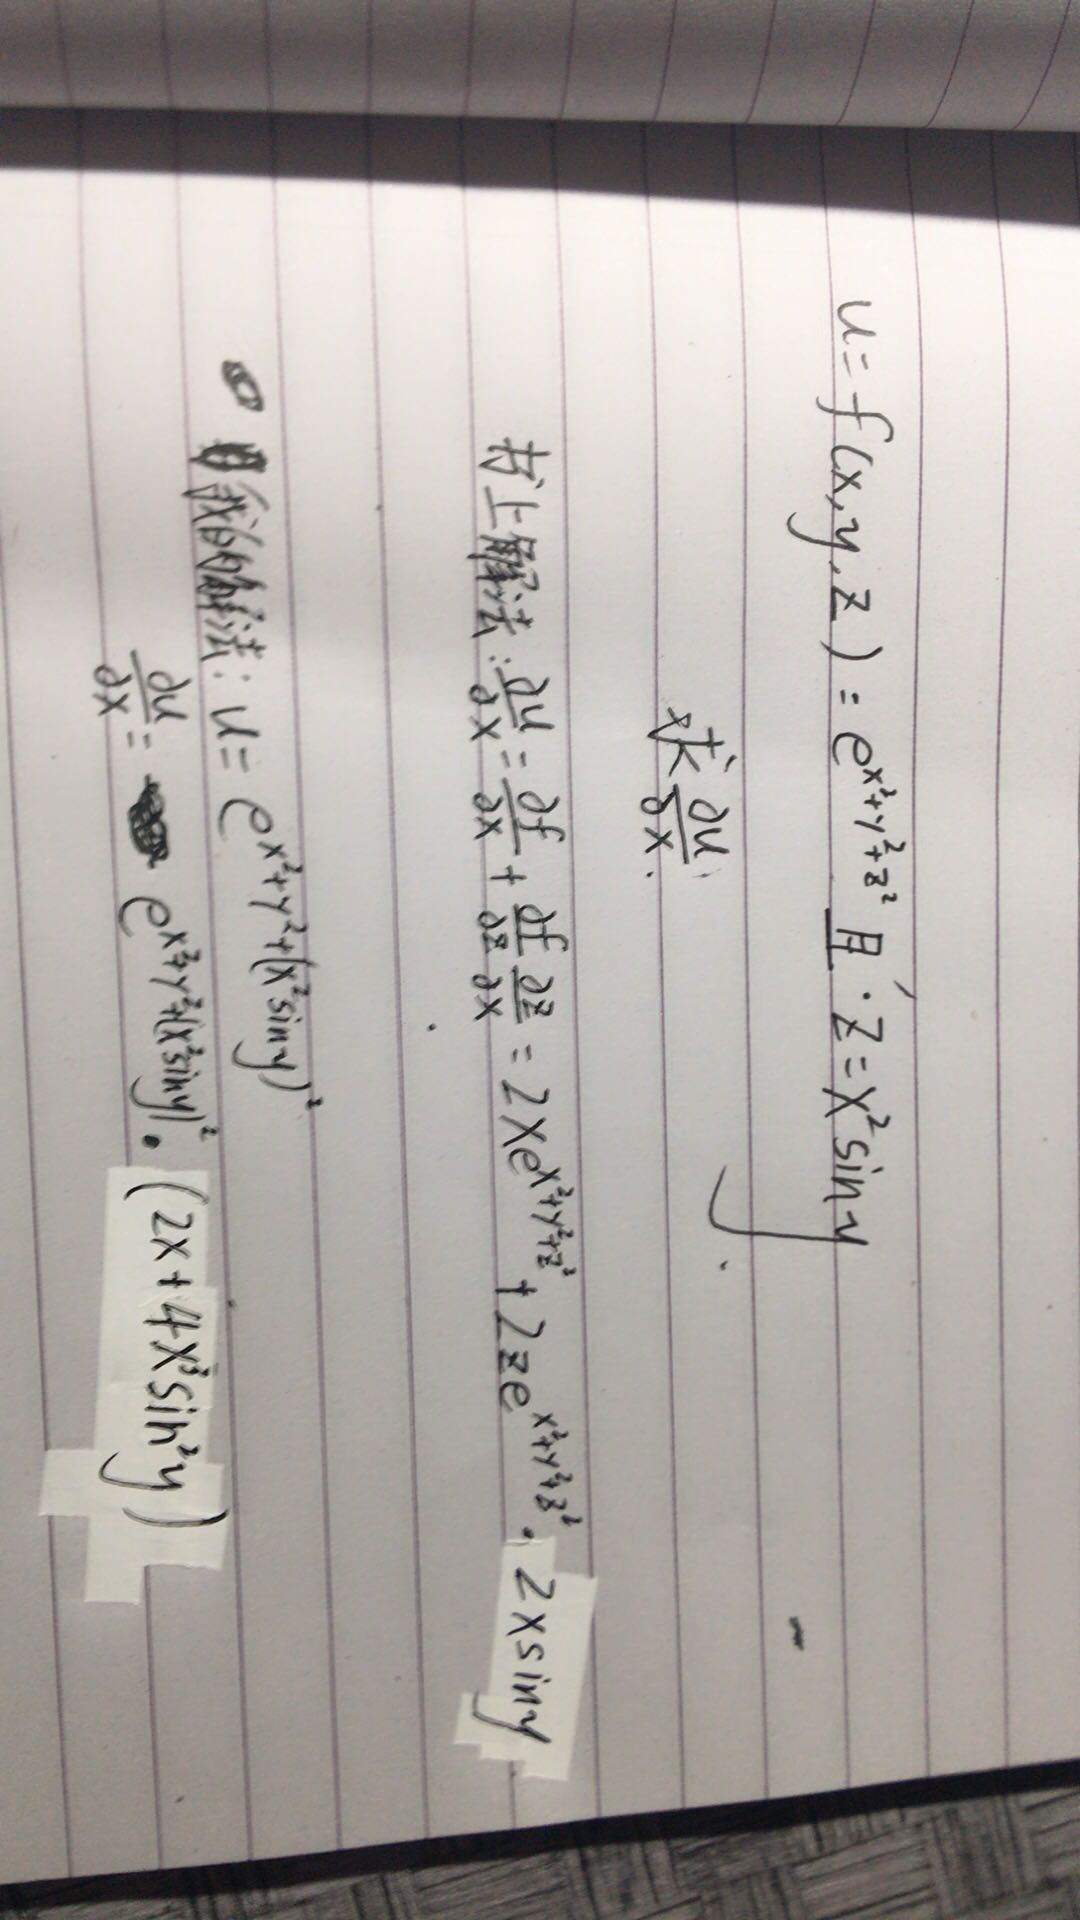 u=f(x,y,z)=e^{x²+y²+z²} 且·z=x²siny
求 ∂u/∂x.
书上解法:∂u/∂x=∂f/∂x+∂f/∂z ∂z/∂x=2xe^{x²+y²+z²}+2ze^{x²+y²+z²}·2xsiny
我的解法:u=e^{x²+y²+(x²siny)²}
∂u/∂x=e^{x²+y²+(x²siny)²}·(2x+4x³sin²y)